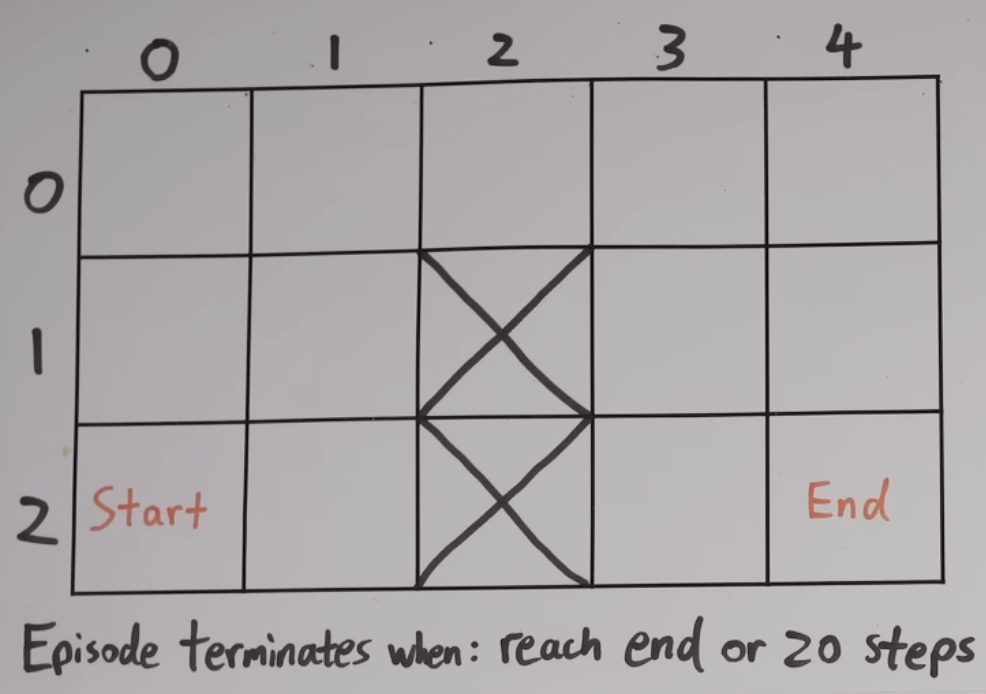 0 1 2 3 4
0
1
2 Start End
Episode terminates when: reach end or 20 steps